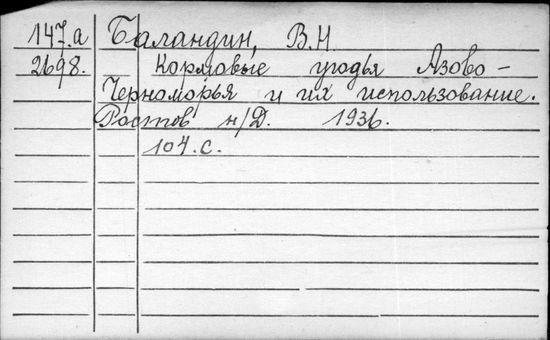 147.а Баландин, В.Н.
2698. Кормовые угодья Азово-
Черноморья и их использование.
Ростов н/Д. 1936.
104.с.